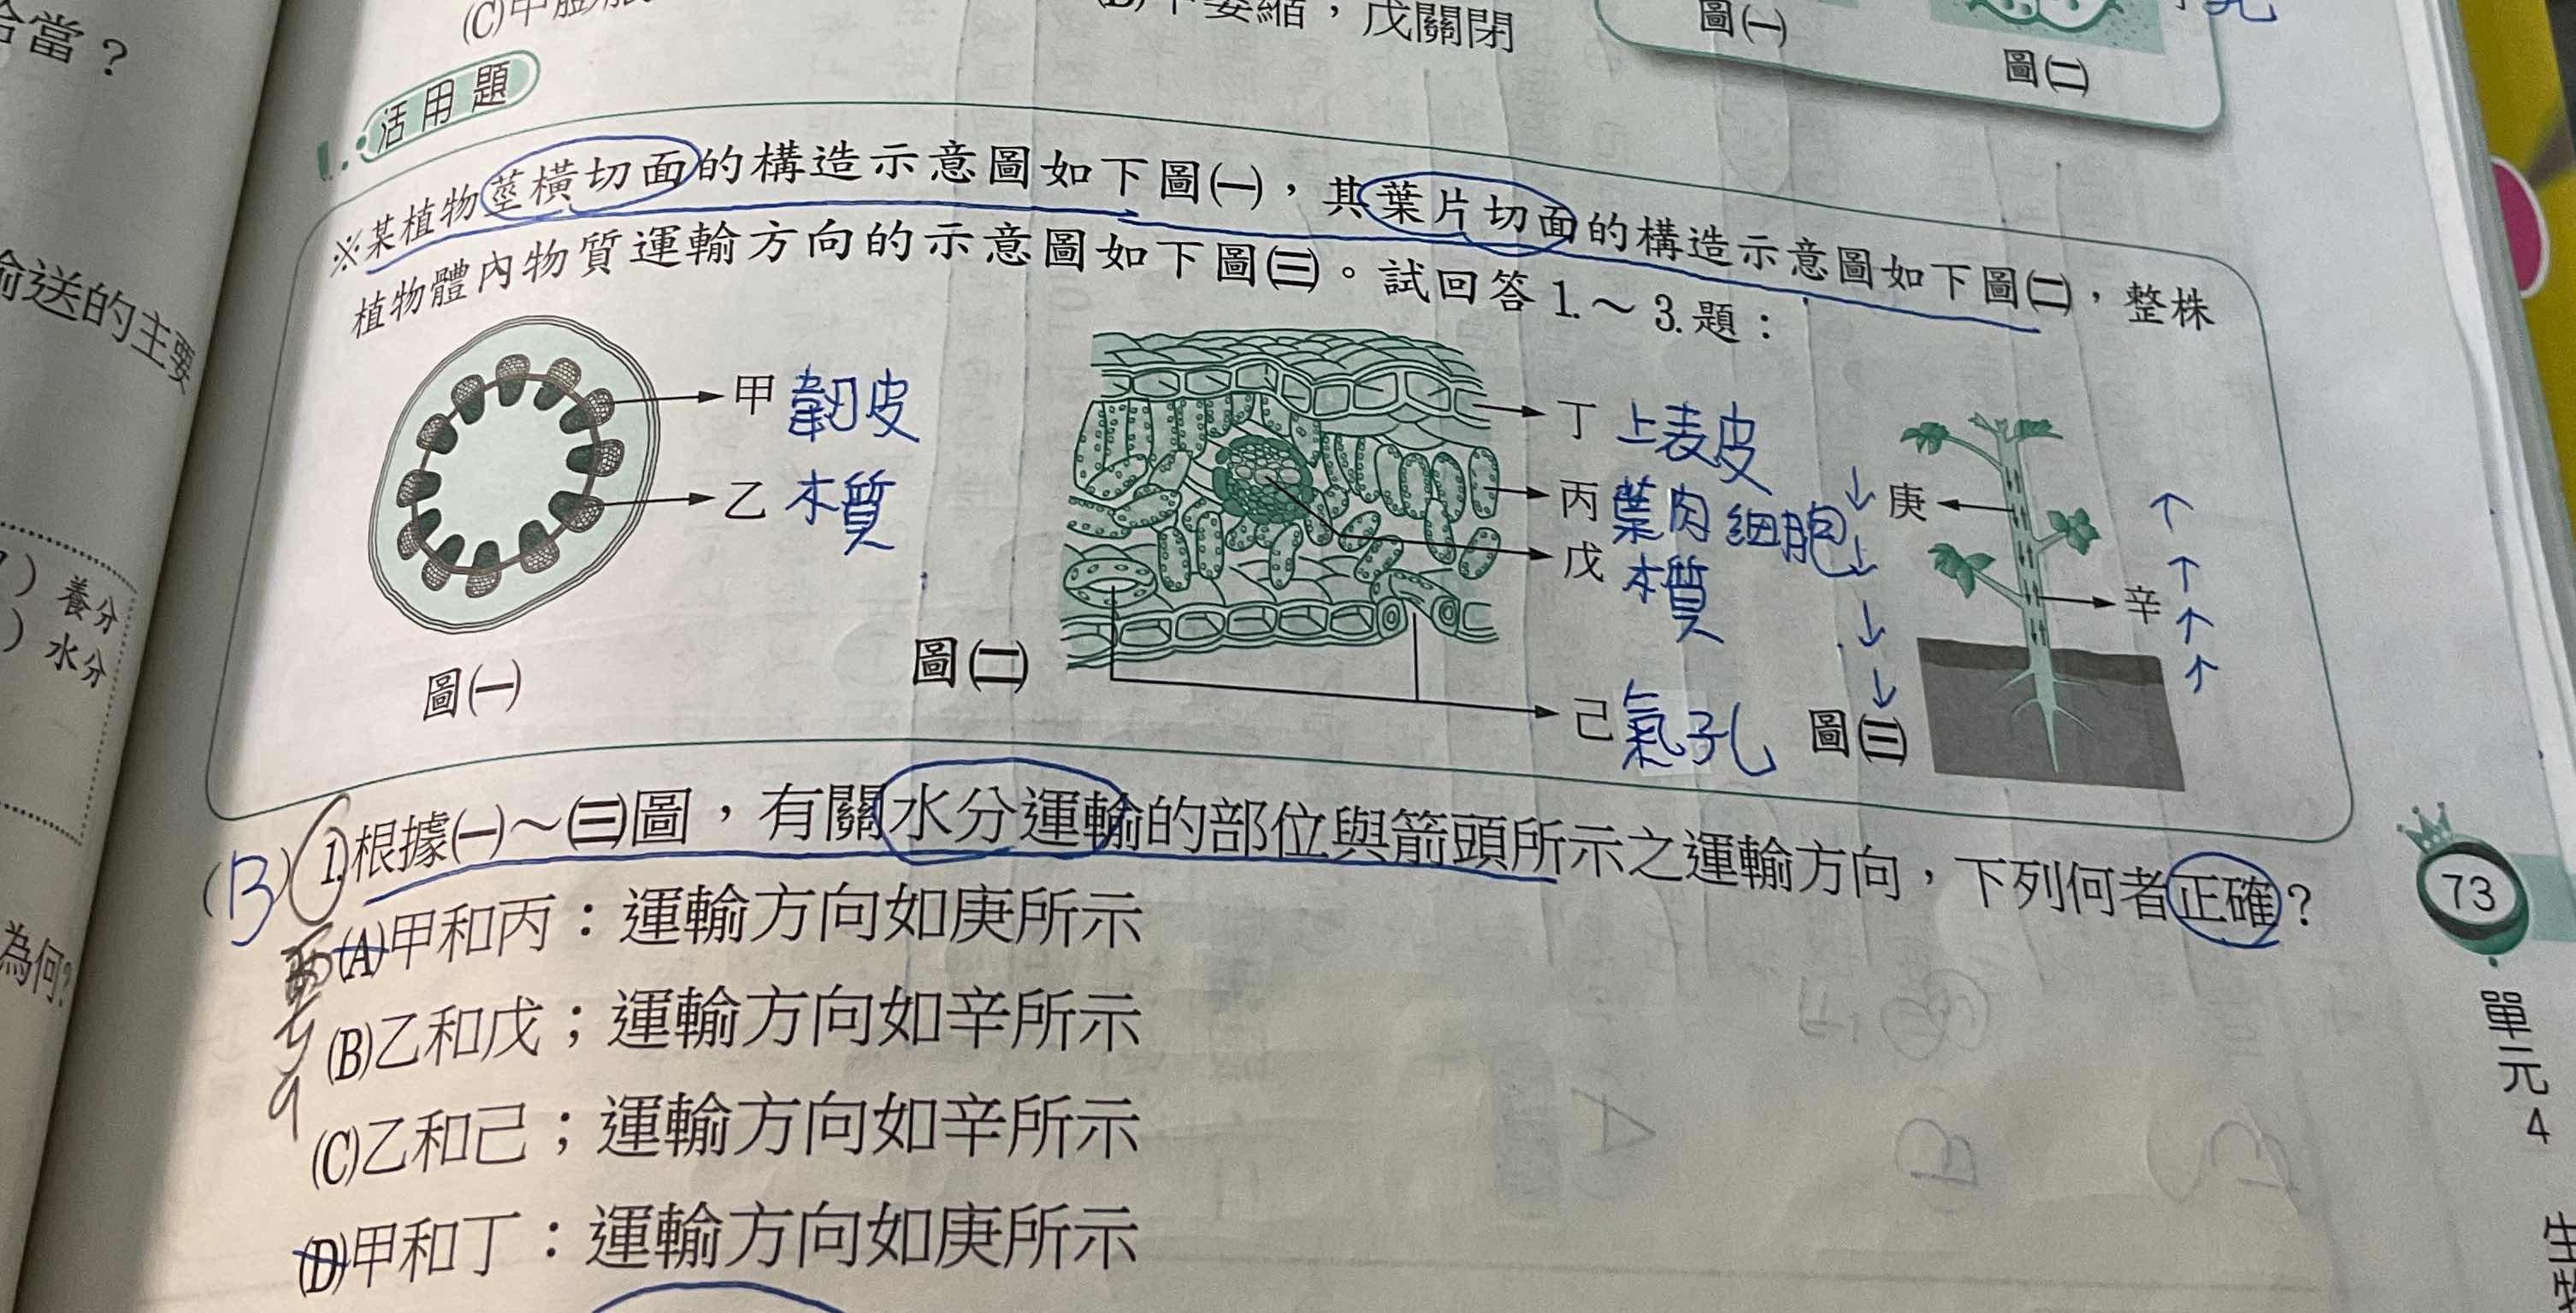 恰當?
輸送的主要
) 養分
) 水分
為何?
圖㈠
圖㈡
戊關閉
活用題
※某植物莖橫切面的構造示意圖如下圖㈠,其葉片切面的構造示意圖如下圖㈡,整株
植物體內物質運輸方向的示意圖如下圖㈢。試回答1.~3.題:
甲 韌皮
乙 木質
圖㈠
丁 上表皮
丙 葉肉細胞
戊 木質
己 氣孔
圖㈡
庚
辛
圖㈢
(B) 1.根據㈠~㈢圖,有關水分運輸的部位與箭頭所示之運輸方向,下列何者正確?
(A)甲和丙:運輸方向如庚所示
(B)乙和戊;運輸方向如辛所示
(C)乙和己;運輸方向如辛所示
(D)甲和丁:運輸方向如庚所示
73
單元4